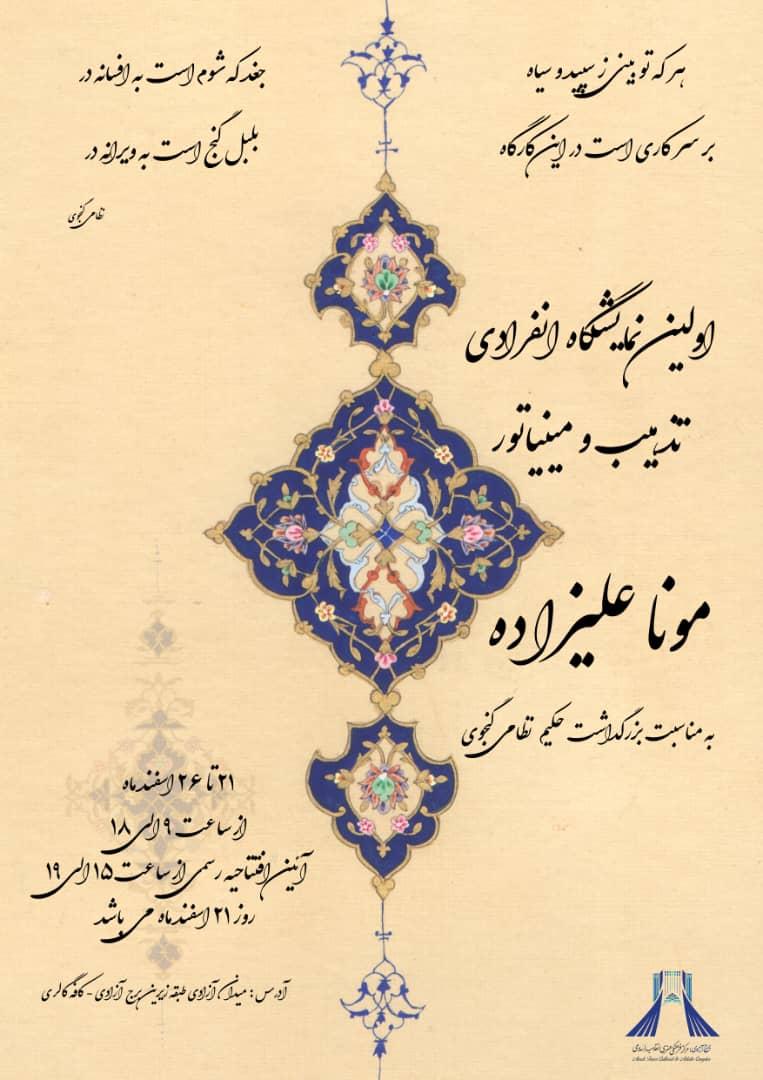 هر که تو بینی ز سپید و سیاه
بر سر کاری است در این کارگاه
جغد که شوم است به افسانه در
بلبل گنج است به ویرانه در
نظامی گنجوی
اولین نمایشگاه انفرادی
تذهیب و مینیاتور
مونا علیزاده
به مناسبت بزرگداشت حکیم نظامی گنجوی
۲۱ تا ۲۶ اسفند ماه
از ساعت ۹ الی ۱۸
آئین افتتاحیه رسمی از ساعت ۱۵ الی ۱۹
روز ۲۱ اسفند ماه می باشد
آدرس : میدان آزادی طبقه زیرین برج آزادی - کافه گالری